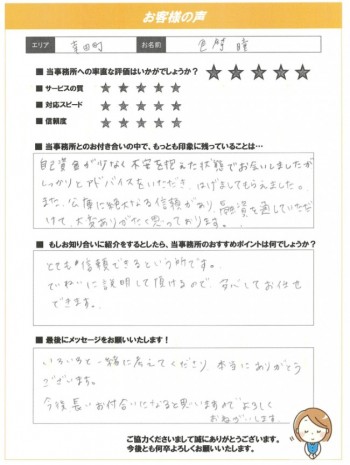 お客様の声
エリア 幸田町 お名前
■ 当事務所への率直な評価はいかがでしょう？ ★★★★★
■ サービスの質 ★★★★★
■ 対応スピード ★★★★★
■ 信頼度 ★★★★★
■ 当事務所とのお付き合いの中で、もっとも印象に残っていることは…
自己資金が少なく不安を抱えた状態でお会いしましたが
しっかりとアドバイスをいただき、はげましてもらえました。
また、公庫に絶大なる信頼があり、融資を通していただ
けて、大変ありがたく思っております。
■ もしお知り合いに紹介をするとしたら、当事務所のおすすめポイントは何でしょうか？
とても信頼できるという所です。
ていねいに説明して頂けるので、安心してお任せ
できます。
■ 最後にメッセージをお願いいたします！
いろいろと一緒に考えてくださり、本当にありがとう
ございます。
今後、長いお付合いになると思いますのでよろしく
おねがいします。
ご協力くださいまして誠にありがとうございます。
今後とも何卒よろしくお願いいたします。